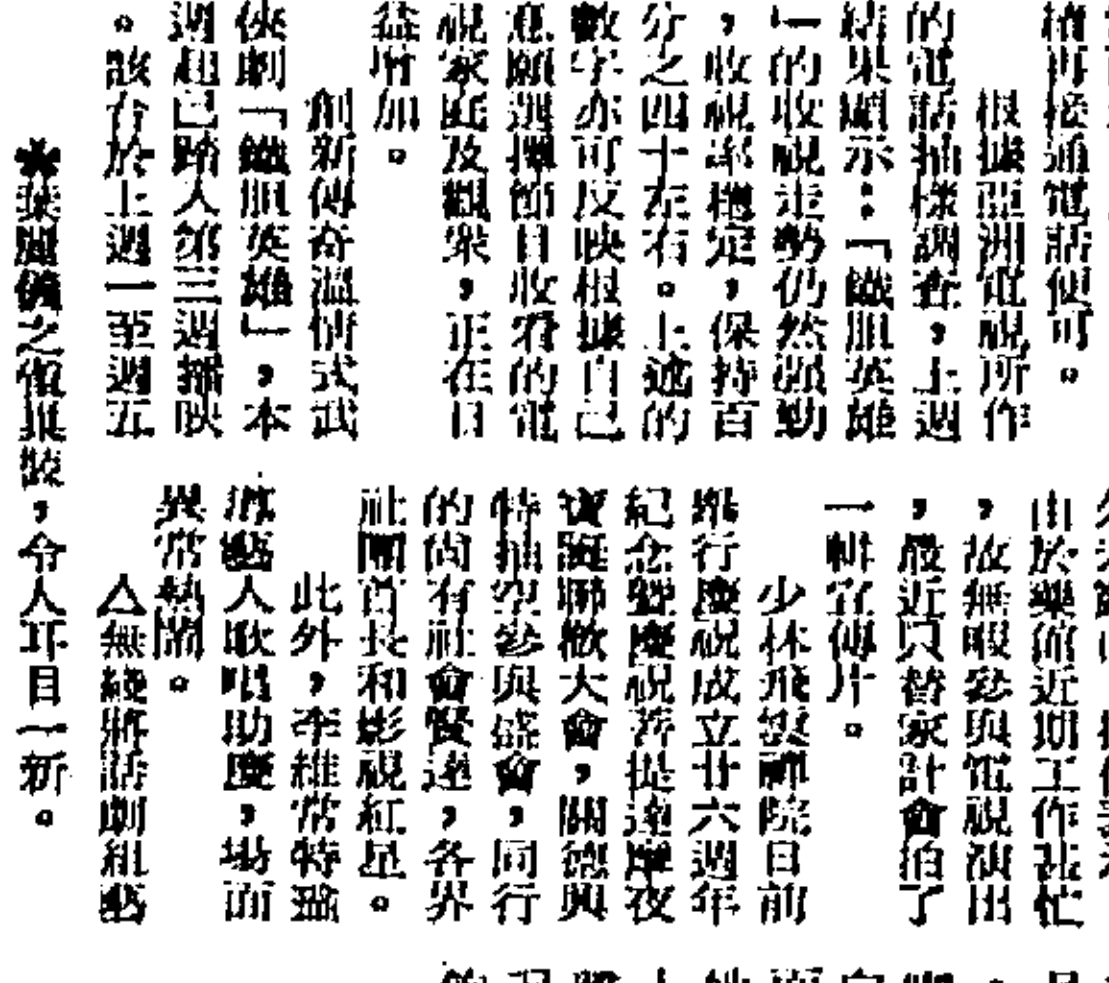 稍再接通電話便可。
根據亞洲電視所作
的電話抽樣調查，上週
結果顯示：「鐵胆英雄
」的收視走勢仍然强勁
，收視率穩定，保持百
分之四十左右。上述的
數字亦可反映根據自己
意願選擇節目收看的電
視家庭及觀衆，正在日
益增加。
創新傳奇溫情式武
俠劇「鐵胆英雄」，本
週起已踏入第三週播映
。該台於上週一至週五
由於藥館近期工作甚忙
，故無暇參與電視演出
，最近只替家計會拍了
一輯宣傳片。
少林飛髮禪院日前
舉行慶祝成立廿六週年
紀念暨慶祝菩提達摩夜
寶誕聯歡大會，關德興
特抽空參與盛會，同行
的尚有社會賢達，各界
社團首長和影視紅星。
此外，李維常特邀
藝人歌唱助慶，場面
異常熱鬧。
△無綫將話劇組藝
之裝，令人耳目一新。